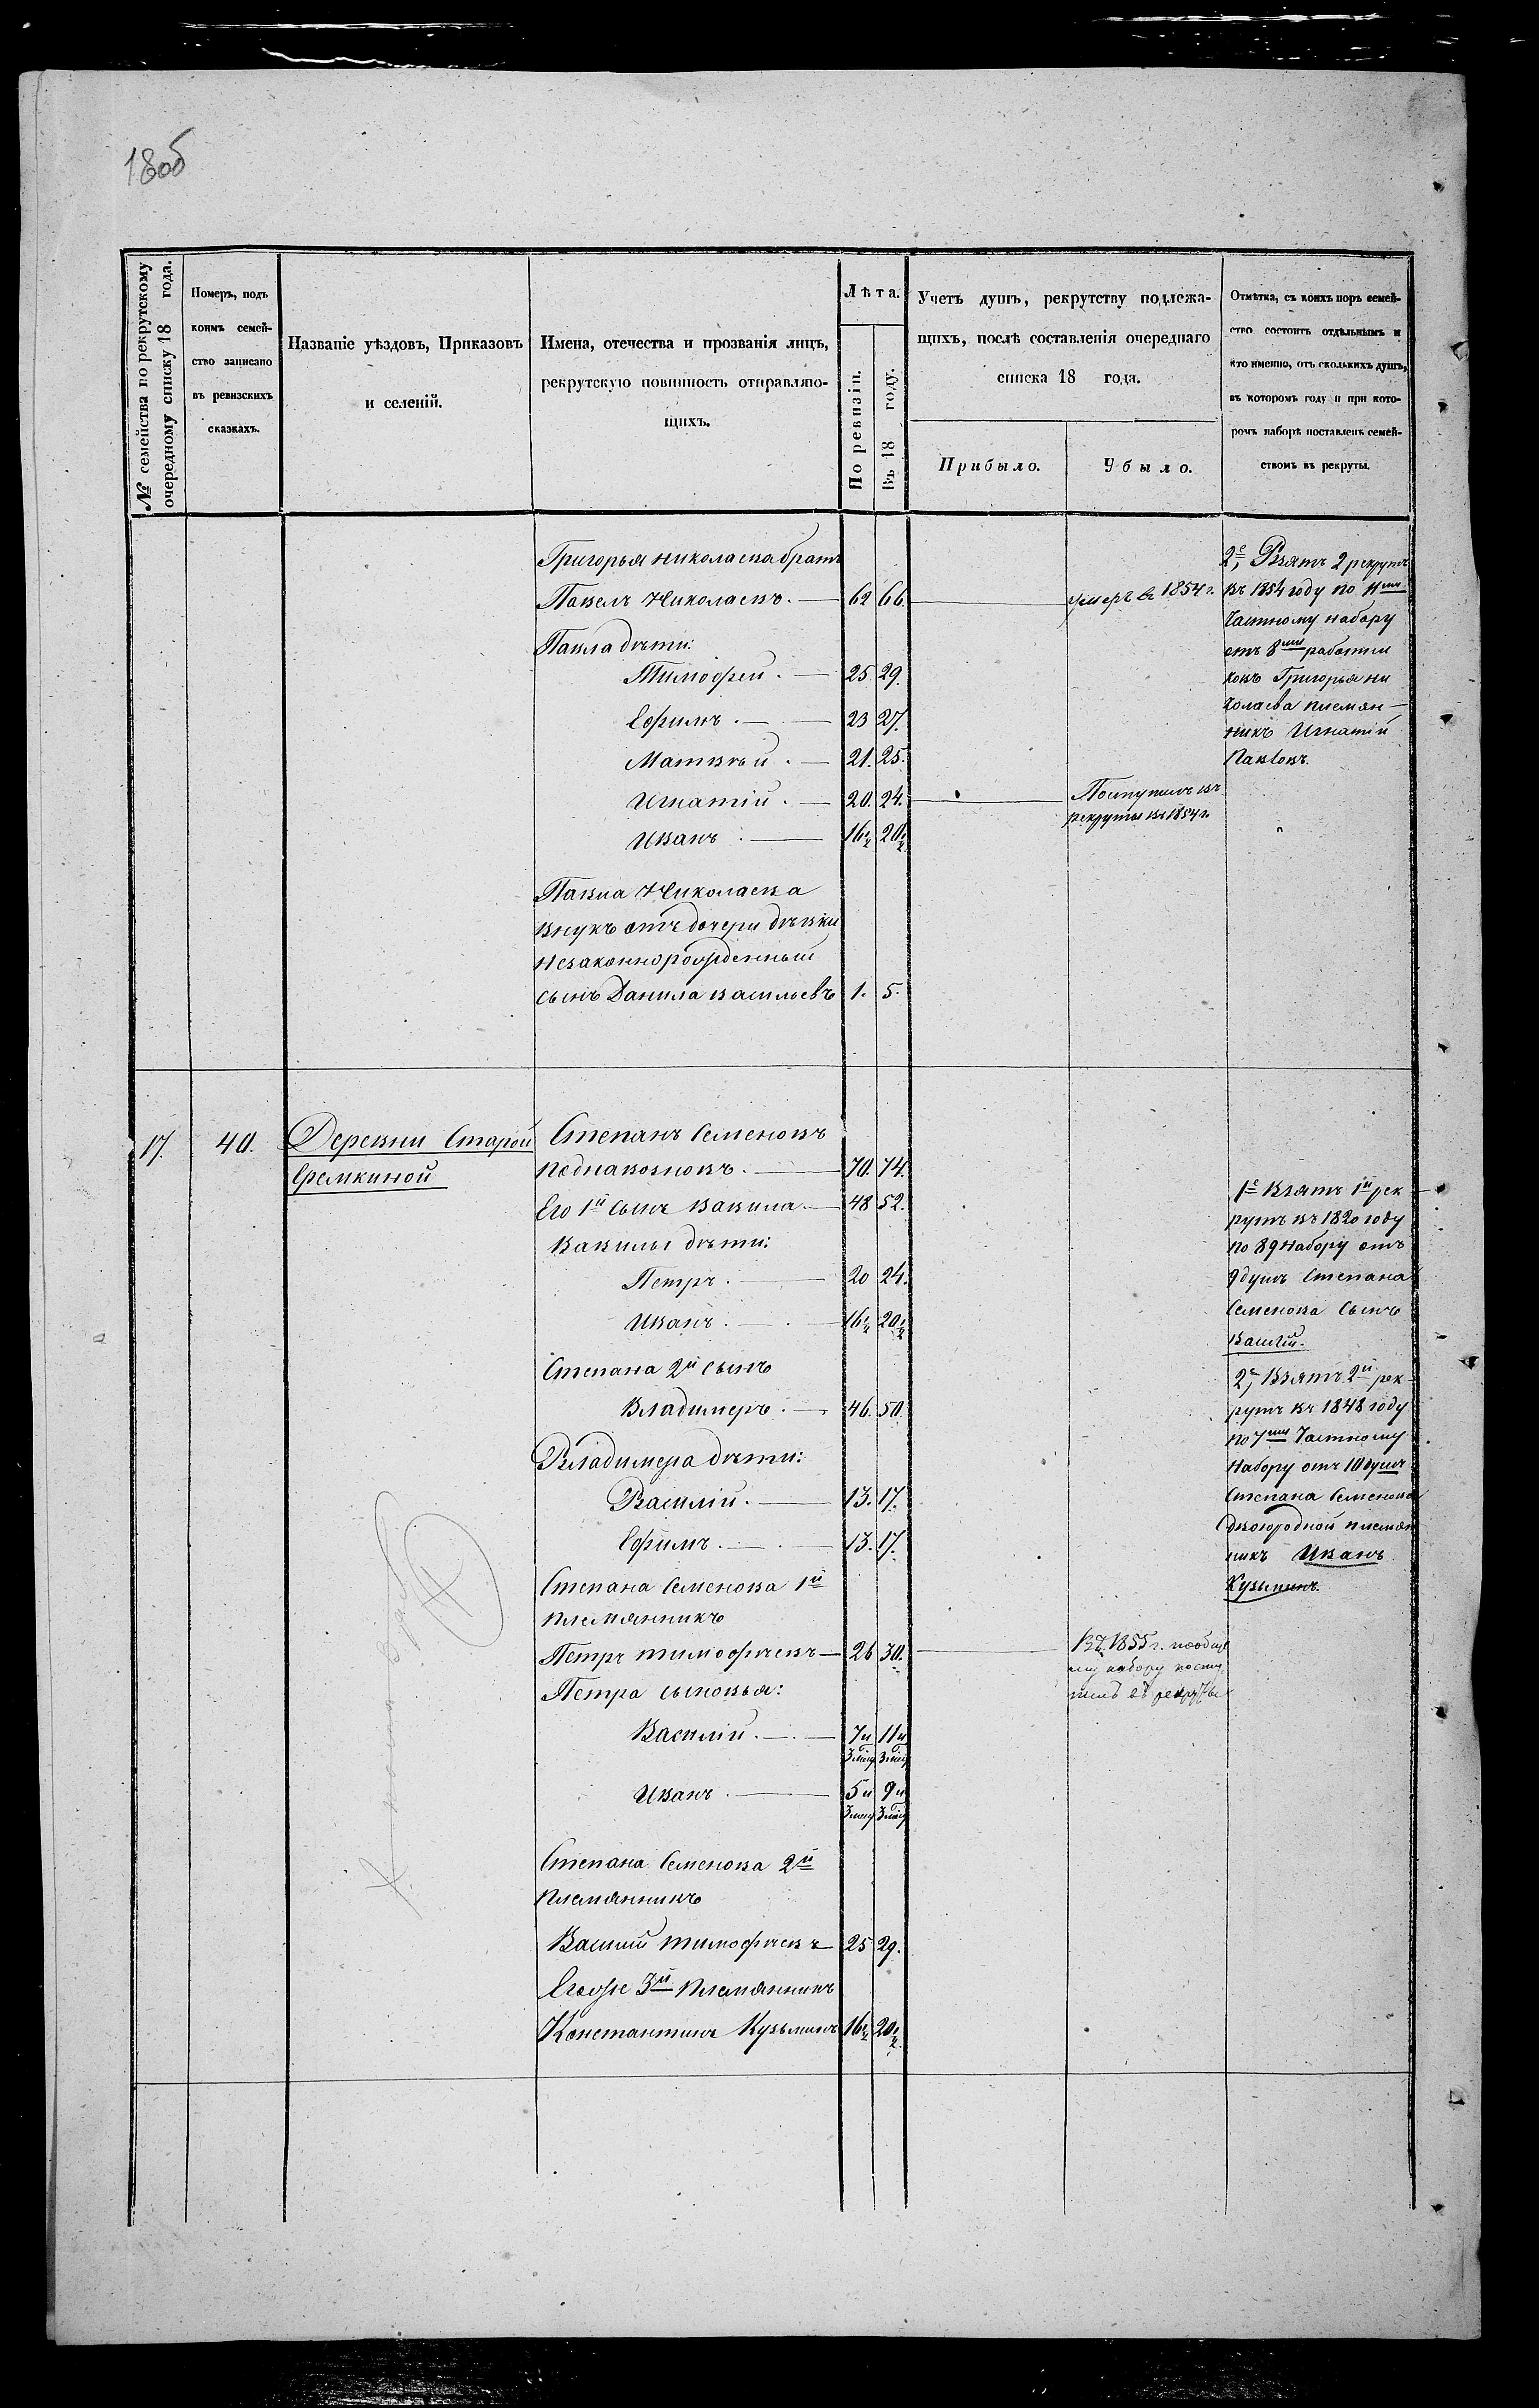 180об
№ семейства по рекрутскому
очередному списку 18 года.
Номеръ, подъ
коимъ семей-
ство записано
въ ревизскихъ
сказкахъ.
Названіе уѣздовъ, Приказовъ
и селеній.
Имена, отечества и прозванія лицъ,
рекрутскую повинность отправляю-
щихъ.
Лѣта.
По ревизіи.
Въ 18 году.
Учетъ душъ, рекрутству подлежа-
щихъ, послѣ составленія очереднаго
списка 18 года.
Прибыло.
Убыло.
Отмѣтка, съ коихъ поръ семей-
ство состоитъ отдѣльнымъ и
кто именно, отъ сколькихъ душъ,
въ которомъ году и при кото-
ромъ наборѣ поставленъ семей-
ствомъ въ рекруты.
Григорья Николаева братъ
Павелъ Николаевъ. — 62 66. умеръ въ 1854 г.
Павла дѣти:
Тимофей. — 25 29.
Ефимъ. — 23 27.
Матвѣй. — 21. 25.
Игнатій. — 20. 24. Поступилъ въ
рекруты въ 1854 г.
Иванъ — 16½ 20½
Павла Николаева
внукъ отъ дочери дѣвки
незаконнорожденный
сынъ Данила Васильевъ 1. 5.
2е, Взятъ 2 рекрутъ
въ 1854 году по 11му
частному набору
отъ 8ми работни
ковъ Григорья Ни
колаева племян-
никъ Игнатій
Павловъ.
17. 40. Деревни Старой
Еремкиной
Степанъ Семеновъ
Поднавозновъ. — 70. 74.
Его 1й сынъ Вавила. — 48 52.
Вавилы дѣти:
Петръ. — 20 24.
Иванъ. — 16½ 20½
Степана 2й сынъ
Владимеръ. — 46. 50.
Владимера дѣти:
Василій. — 13. 17.
Ефимъ. — 13. 17.
Степана Семенова 1й
племянникъ
Петръ Тимофѣевъ — 26 30. Въ 1855 г. по общ
му набору посту
пилъ въ рекруты
Петра сыновья:
Василій. — 7 и 11 и
3 мѣс 3 мѣс
Иванъ. — 5 и 9 и
3 мѣс 3 мѣс
Степана Семенова 2й
племянникъ
Василій Тимофѣевъ 25 29.
Егоже 3й племянникъ
Константинъ Кузьминъ 16½ 20½
1е Взятъ 1й рек
рутъ въ 1820 году
по 89 набору отъ
9 душъ Степана
Семенова сынъ
Василій.
2е, Взятъ 2й рек-
рутъ въ 1848 году
по 7му частному
набору отъ 10 душъ
Степана Семенова
двоюродной племян
никъ Иванъ
Кузьминъ.